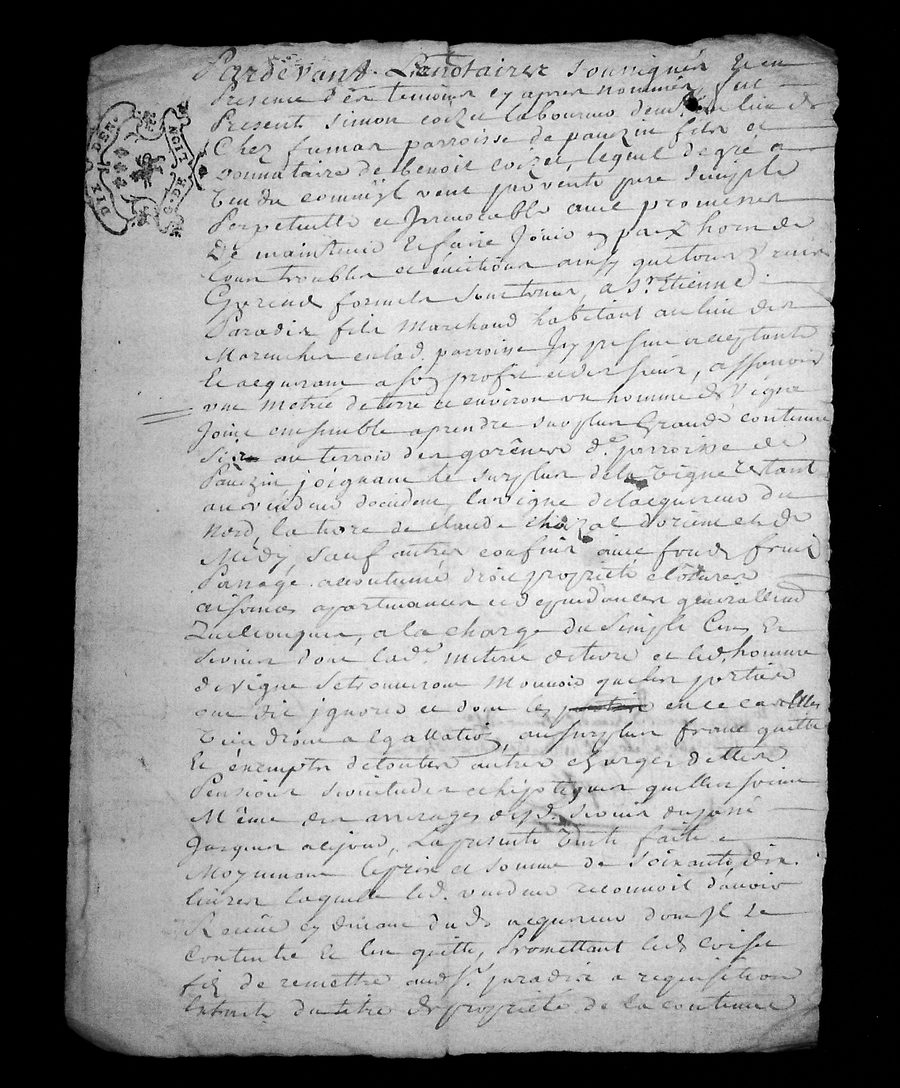 Pardevant Le notaire soussigné et en
presence des temoins cy apres nommés fut
present simon coizet laboureur demt au lieu de
chez fumas parroisse de pauezin fils et
donnataire de benoit coizet, lequel de gré a
vendu comme il vent par vente pure simple
perpetuelle et Irrevocable avec promesses
De maintenir et faire Jouir en paix hors de
tous troubles et evictions
formels a sr Etienne
Paradis fils marchand habitant au lieu des
en lad. parroisse Jcy present et acceptant
et acquerant a son profit et des siens, assavoir
une metreé de terre et environ un homme de vigne
Joint ensemble a prendre sur plus Grande contenue
size au terroir des dte parroisse de
Pauezin joignant le surplus de la vigne restant
au vendeur d'occident, la vigne de l'acquereur du
nord, la terre de claude chazal d'orient et de
Midy, sauf autres confins avec fonds fruits
passage accoutumé droit propriété clôtures
aisances apartenances et dependances generallement
Quelconques, a la charge du simple Cens Et
servis dont lad. metreé de terre et led. homme
de vigne se trouveront Mouvoir que les parties
ont dit ignorer et dont les en ce cas Elles
viendront a Egallation, au surplus franc quitte
Et exempts de toutes autres charges dettes
Pensions servitudes et hipoteques quelles soient
Même des arrerages desd. servis du passé
Jusques a ce jour, La presente vente faite
Moyennant le prix et somme de soixante dix
livres laquelle led. vendeur reconnoit d'avoir
Receue cy devant dud. acquereur dont Il se
contente Et l'en quitte, Promettant led. coiset
fils de remettre aud. sr. paradis a requisition
Extraits du titre de propriété de la contenue
DIX DEN.
G. DE